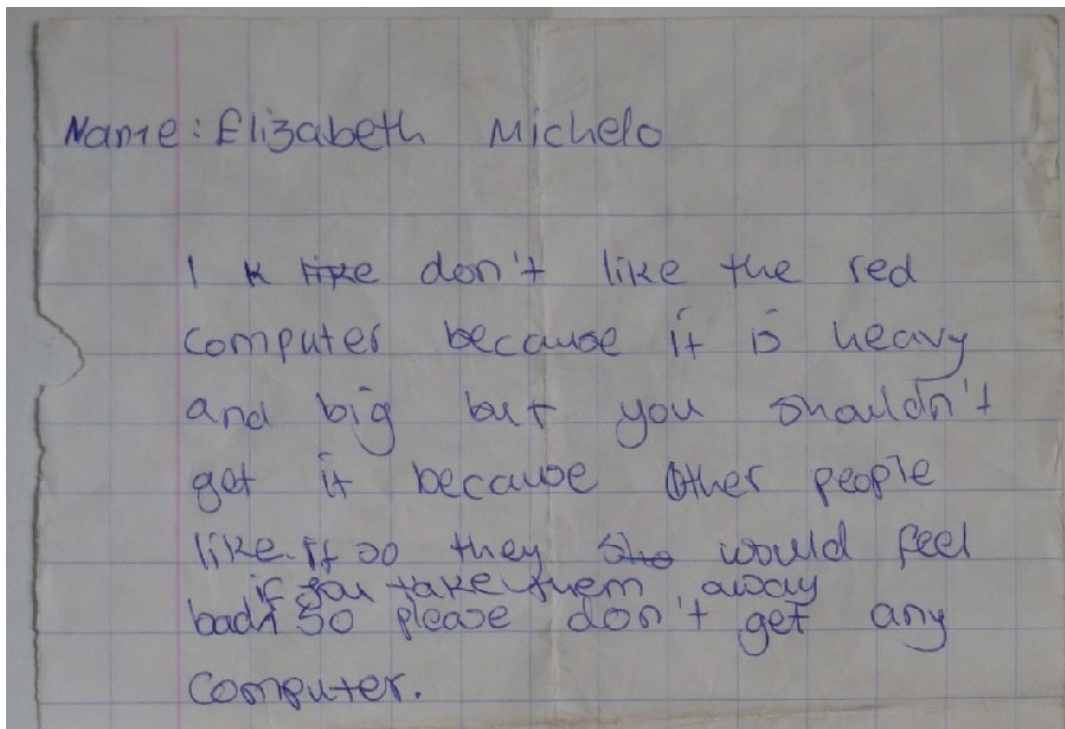 Name: Elizabeth Michelo
I k like don't like the red
computer because it is heavy
and big but you shouldn't
get it because Other people
like it so they sho would feel
if you take them away
bad So please don't get any
computer.